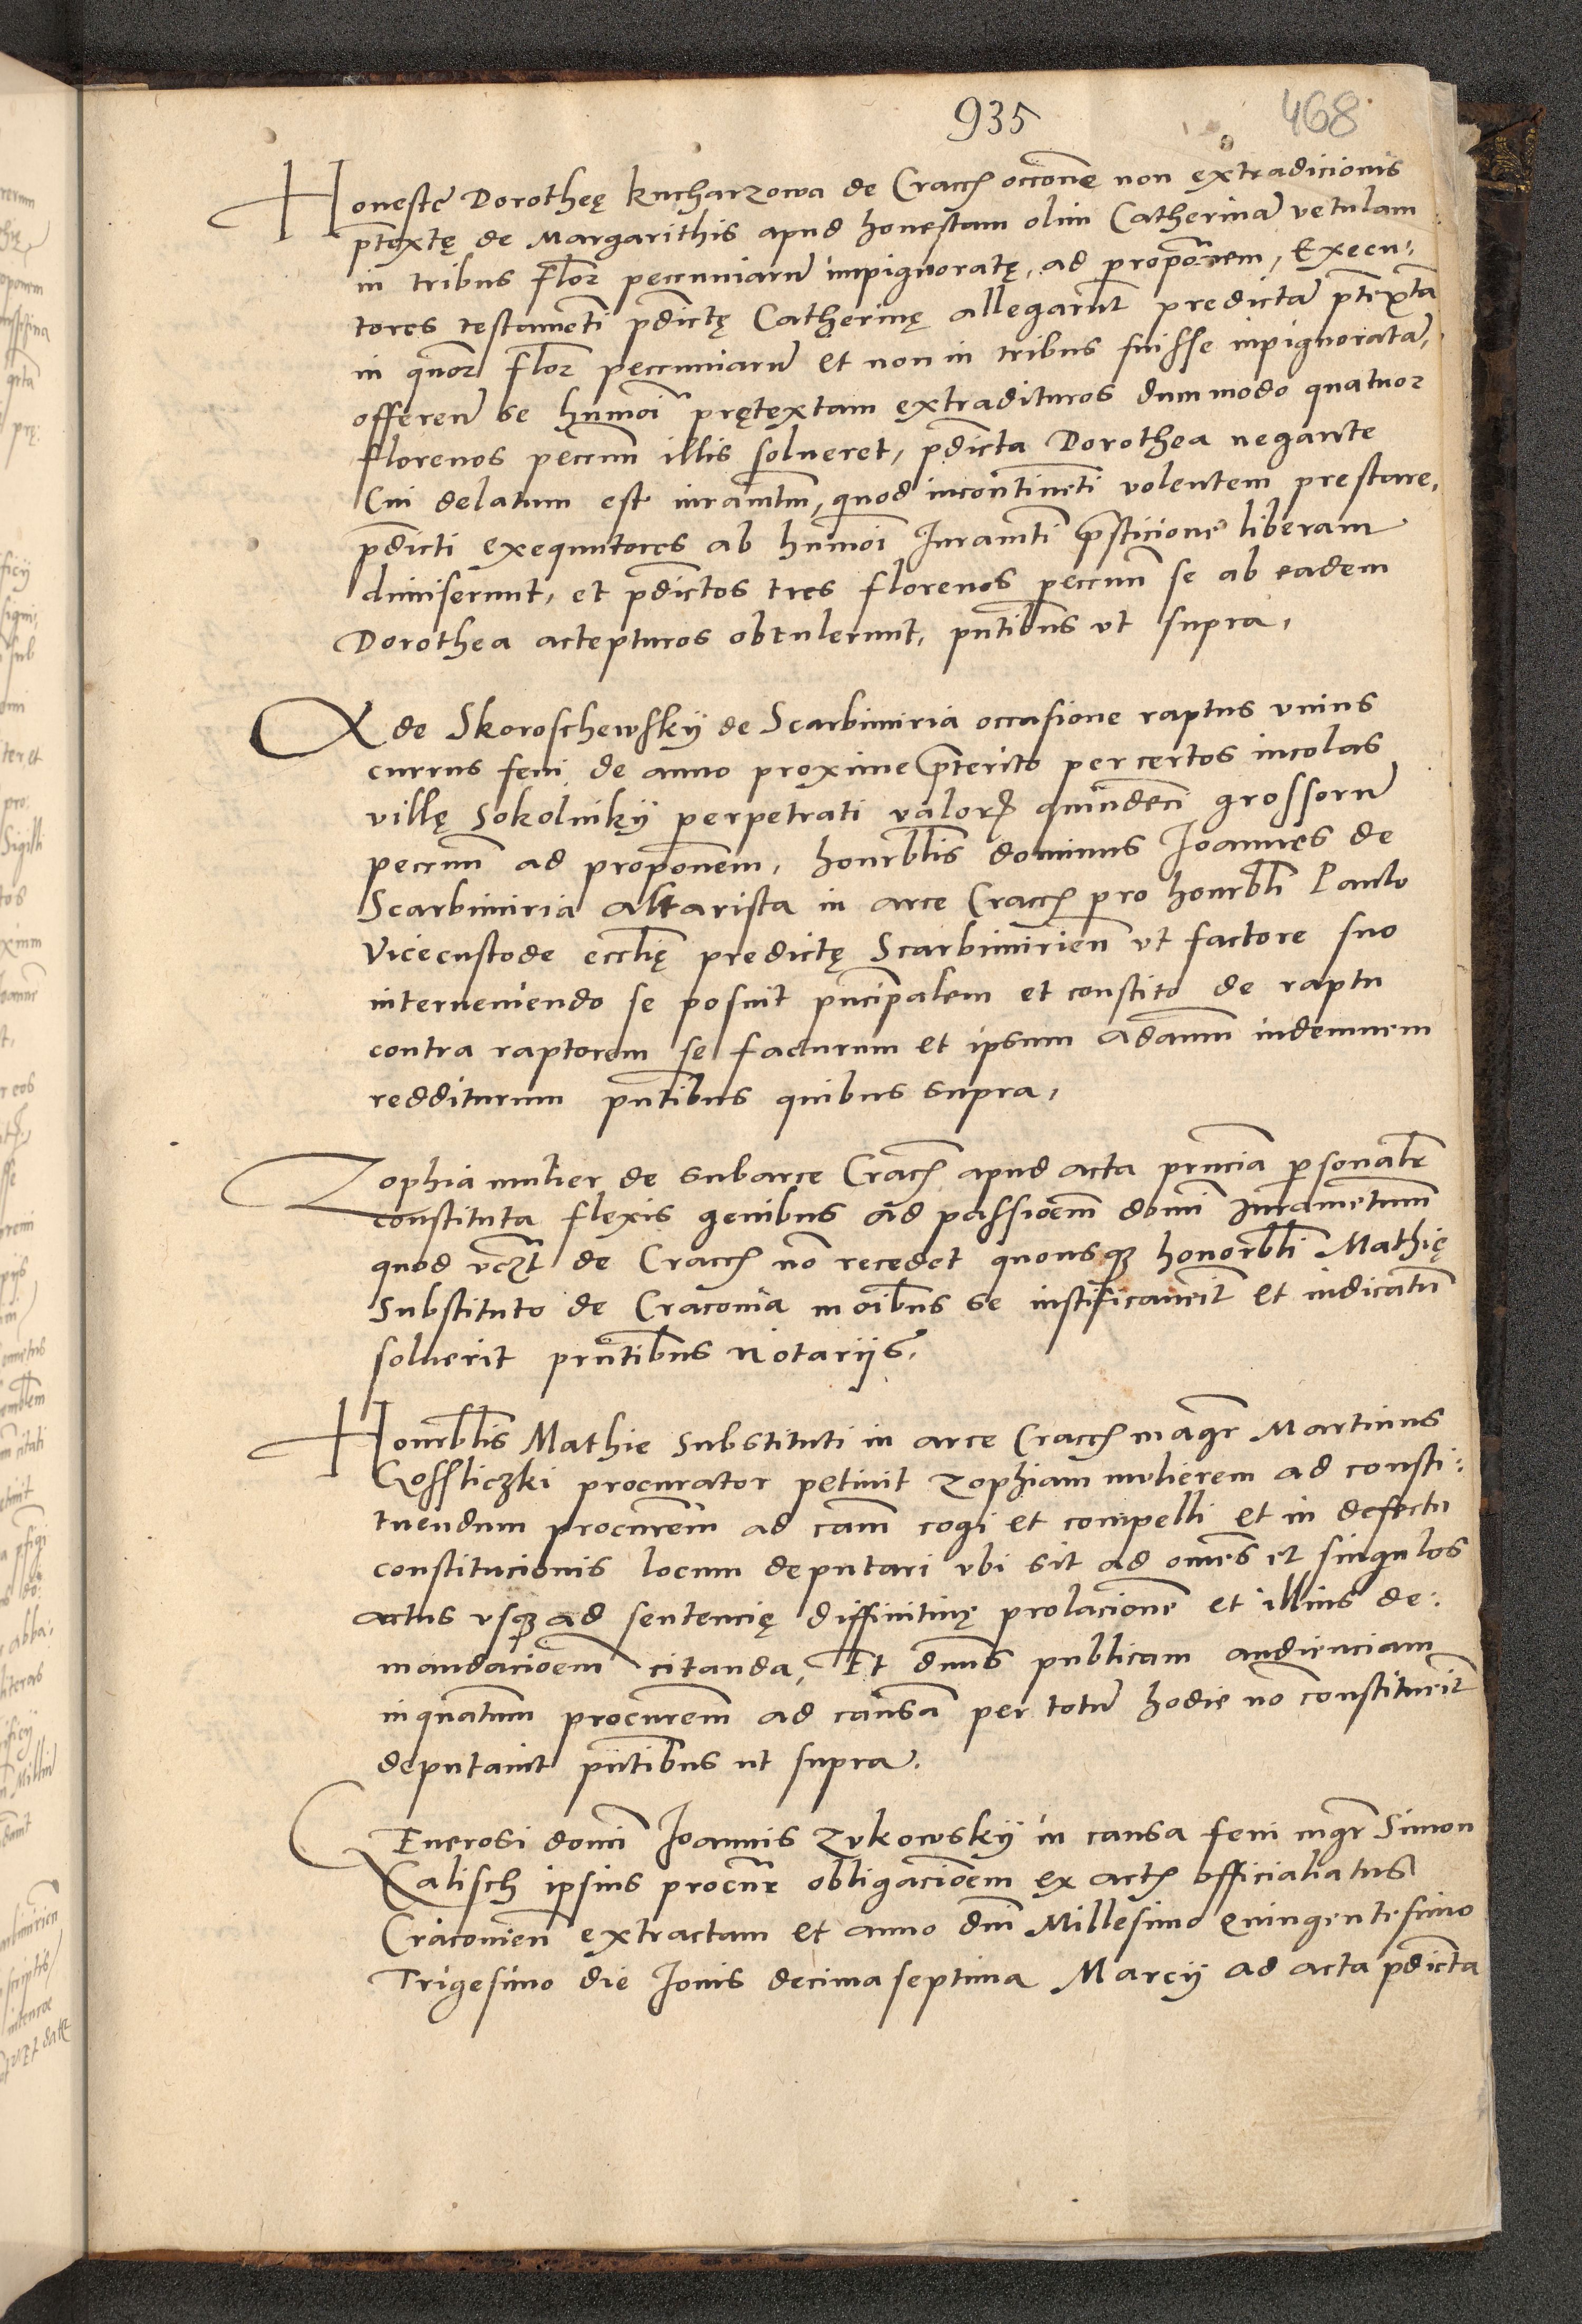 935 468
Honeste Dorotheę Kucharzowa de Cracoͣ occōne non extradicionis
p̄textę de Margarithis apud honestam olim Catherinā vetulam
in tribus flor pecuniarū impignoratę, ad propōnem, Execu:
tores testamēti p̄dictę Catherinę allegarūt predictā p̄textā
in quor flor pecuniarū et non in tribus fuisse inpignoratā,
offeren̄ se hmōi prętextam extradituros dummodo quatuor
florenos pecun̄ illis solueret, p̄dicta Dorothea negante
Cui delatum est iuramtm, quod incontinēti volentem prestare,
p̄dicti exequutores ab hmōi Iuramti p̄sticione liberam
dimiserunt, et p̄dictos tres florenos pecun̄ se ab eadem
Dorothea accepturos obtulerunt, pn̄tibus vt supra,
Adę Skoroschewsky de Scarbimiria occasione raptus vnius
currus feni de anno proxime p̄terito per certos incolas
villę Sokolniky perpetrati valoris quīndeci grossorū
pecun̄ ad propōnem, honorblis dominus Joannes de
Scarbimiria altarista in arce Cracoͣ pro honorbli Paulo
Vicecustode ecclię predictę Scarbimirien̄ vt factore suo
interueniendo se posuit pn̄cipalem et constito de raptu
contra raptorem se facturum et ipsum Adamm indemnem
redditurum pn̄tibus quibus supra,
Zophia mulier de subarce Cracoͣ apud acta prn̄cia personalr
constituta flexis genibus ad passioēm domī Iuramētum
quod vcʒt de Cracoͣ nō recedet quousqʒ honorbli Mathię
Substituto de Craconia in oībus se iustificauerit et iudicatū
soluerit prn̄tibus notariis.
Honorblis Mathie Substituti in arce Cracoͣ magr Martinus
Gossliczki procurator petiuit Zophiam mulierem ad consti:
tuendum procurem ad cam̄ cogi et compelli et in defectu
constitucionis locum deputari vbi sit ad omēs et singulos
actus vsqʒ ad sentencię diffinitiuę prolacionē et illius de:
mandacioēm citanda, Et dn̄us publicam audienciam
inquantum procurem ad causā per totū hodie nō constituerit
deputauit pn̄tibus ut supra.
GEnerosi domī Joannis Zukowsky in causa feni mgr Simon
Calisch ipsius procur obligacioēm ex actis officialiatus
Craconien̄ extractam et anno dn̄i Millesimo Quingentesimo
Trigesimo die Jouis decima septima Marcij ad acta p̄dicta